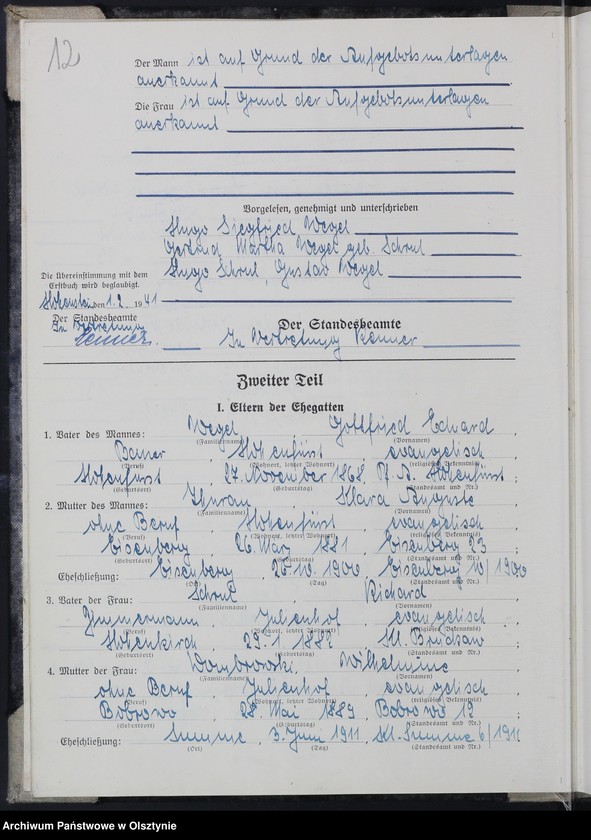 12
Der Mann ist auf Grund der Aufgebotsunterlagen
anerkannt
Die Frau ist auf Grund der Aufgebotsunterlagen
anerkannt
Vorgelesen, genehmigt und unterschrieben
Hugo Siegfried Wegel
Gertrud Martha Wegel geb. Schrul
Hugo Schrul, Gustav Wegel
Die Übereinstimmung mit dem
Erstbuch wird beglaubigt.
den 1.2. 1941
Der Standesbeamte
In Vertretung
Der Standesbeamte
In Vertretung
Zweiter Teil
I. Eltern der Ehegatten
1. Vater des Mannes: Wegel Gottfried Eduard
(Familienname) (Vornamen)
Bauer Hohenfürst evangelisch
(Beruf) (Wohnort, letzter Wohnort) (religiöses Bekenntnis)
Hohenfürst 27. November 1868 Pf. A. Hohenfürst
(Geburtsort) (Geburtstag) (Standesamt und Nr.)
2. Mutter des Mannes: Thurau Klara Auguste
(Familienname) (Vornamen)
ohne Beruf Hohenfürst evangelisch
(Beruf) (Wohnort, letzter Wohnort) (religiöses Bekenntnis)
Eisenberg 26. März 1881 Eisenberg 23
(Geburtsort) (Geburtstag) (Standesamt und Nr.)
Eheschließung: Eisenberg 26.10.1900 Eisenberg 10/1900
(Ort) (Tag) (Standesamt und Nr.)
3. Vater der Frau: Schrul Richard
(Familienname) (Vornamen)
Zimmermann Julienhof evangelisch
(Beruf) (Wohnort, letzter Wohnort) (religiöses Bekenntnis)
Hohenkirch 29.1. 1882
(Geburtsort) (Geburtstag) (Standesamt und Nr.)
4. Mutter der Frau: Dombrowski Wilhelmine
(Familienname) (Vornamen)
ohne Beruf Julienhof evangelisch
(Beruf) (Wohnort, letzter Wohnort) (religiöses Bekenntnis)
Bobrowo 28. Mai 1889 Bobrowo 19
(Geburtsort) (Geburtstag) (Standesamt und Nr.)
Eheschließung: Summe 3. Juni 1911 Kl. Summe 6/1911
(Ort) (Tag) (Standesamt und Nr.)
Archiwum Państwowe w Olsztynie